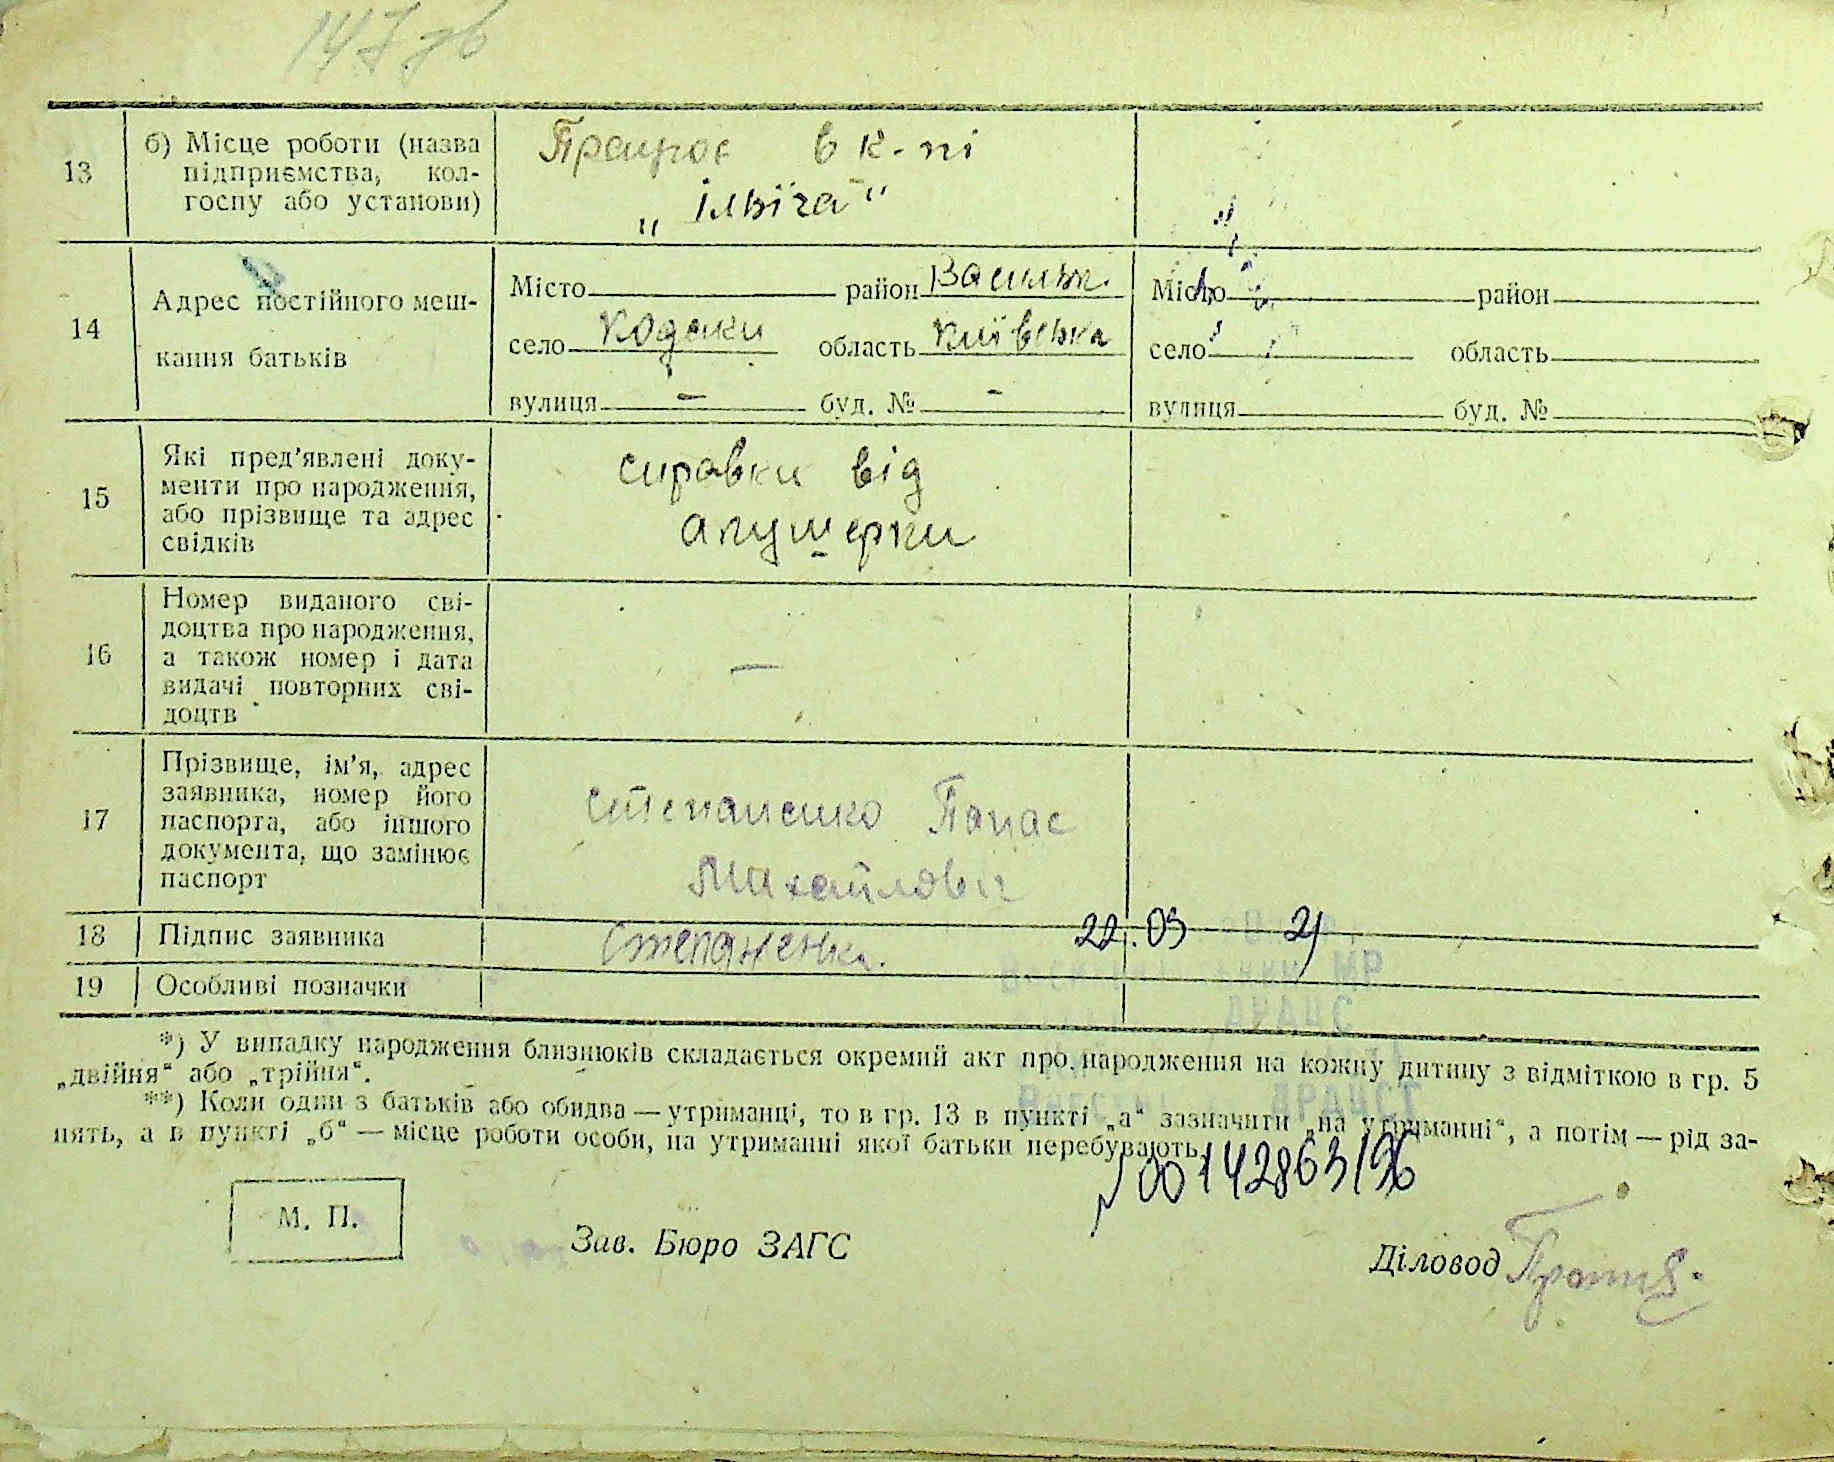 147 зв
13
б) Місце роботи (назва
підприємства, кол-
госпу або установи)
Працює в к-пі
„Ілвіча“
14
Адрес постійного меш-
кання батьків
Місто район Васильк.
село Кодаки область Київська
вулиця — буд. № -
Місто район
село область
вулиця буд. №
15
Які пред'явлені доку-
менти про народження,
або прізвище та адрес
свідків
справки від
акушерки
16
Номер виданого сві-
доцтва про народження,
а також номер і дата
видачі повторних сві-
доцтв
—
17
Прізвище, ім'я, адрес
заявника, номер його
паспорта, або іншого
документа, що замінює
паспорт
Степаненко Панас
Михайлович
18 Підпис заявника
Степаненко.
22.03 21
19 Особливі позначки
*) У випадку народження близнюків складається окремий акт про народження на кожну дитину з відміткою в гр. 5
„двійня“ або „трійня“.
**) Коли один з батьків або обидва — утриманці, то в гр. 13 в пункті „а“ зазначити „на утриманні“, а потім — рід за-
нять, а в пункті „б“ — місце роботи особи, на утриманні якої батьки перебувають.
№00142863/96
М. П.
Зав. Бюро ЗАГС
Діловод